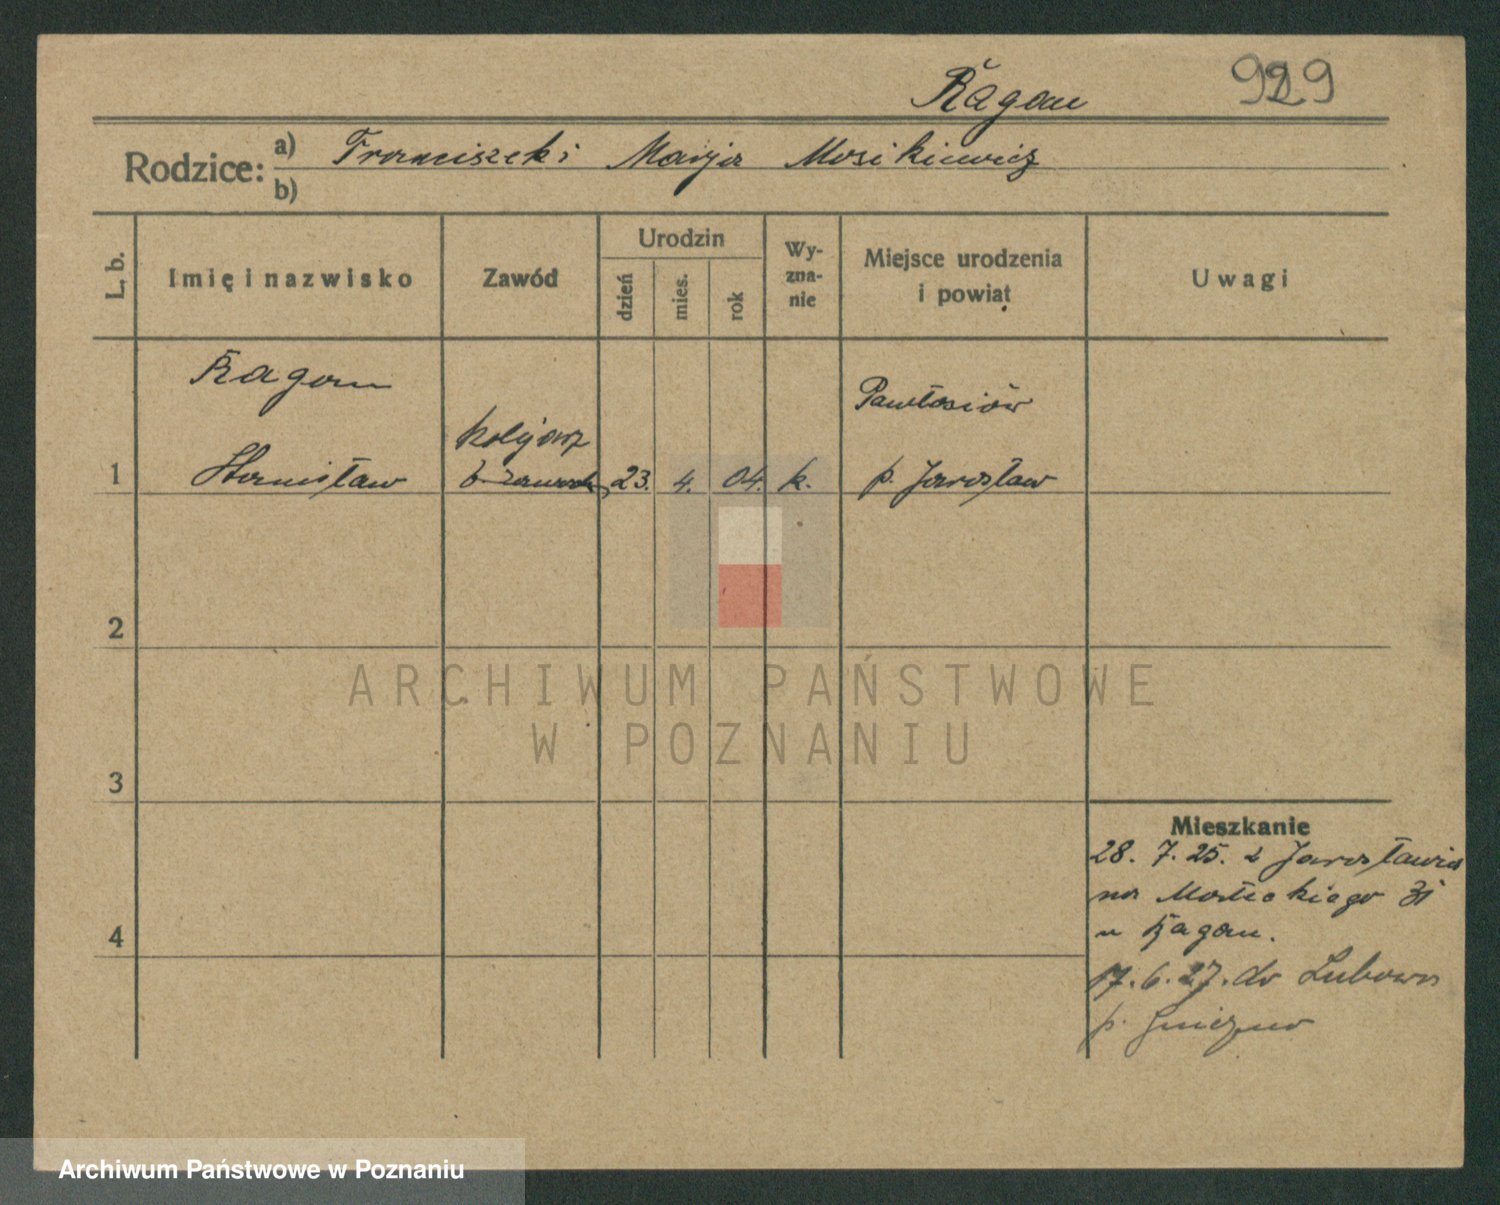 Ragan 929
Rodzice: a) Franciszek i Marja Mosikiewicz
b)
L. b. Imię i nazwisko Zawód Urodzin dzień mies. rok Wyznanie Miejsce urodzenia i powiat Uwagi
Ragan Pawłosiów
kolejarz
1 Stanisław 23. 4. 04. k. p. Jarosław
2
ARCHIWUM PAŃSTWOWE
W POZNANIU
3
Mieszkanie
28. 7. 25. z Jarosławia
na 31
4 u Ragan.
17. 6. 27. do Lubowa
p. Gniezno
Archiwum Państwowe w Poznaniu